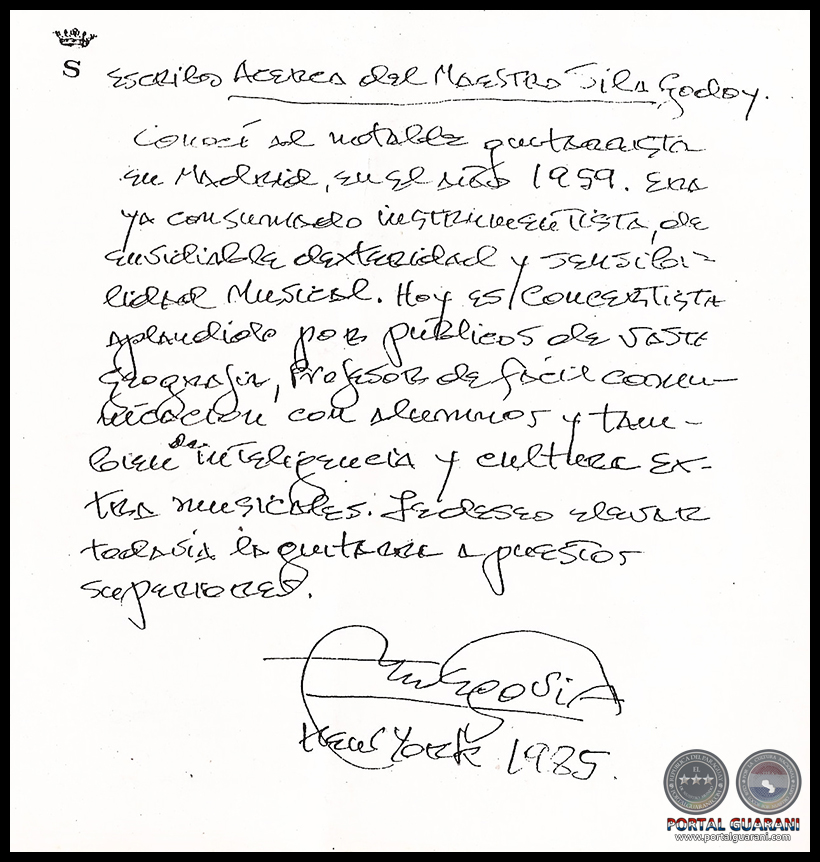 S
Escribo Acerca del Maestro Sila Godoy.
Conocí al notable guitarrista
en Madrid, en el año 1959. Era
ya consumado instrumentista, de
envidiable dexteridad y sensibi-
lidad musical. Hoy es concertista
aplaudido por públicos de vasta
geografía, Profesor de fácil comu-
nicación con alumnos y tam-
bien de inteligencia y cultura ex-
tra musicales. Le deseo elevar
todavía la guitarra a puestos
superiores.
Segovia
New York 1985.
PORTAL GUARANI
www.portalguarani.com